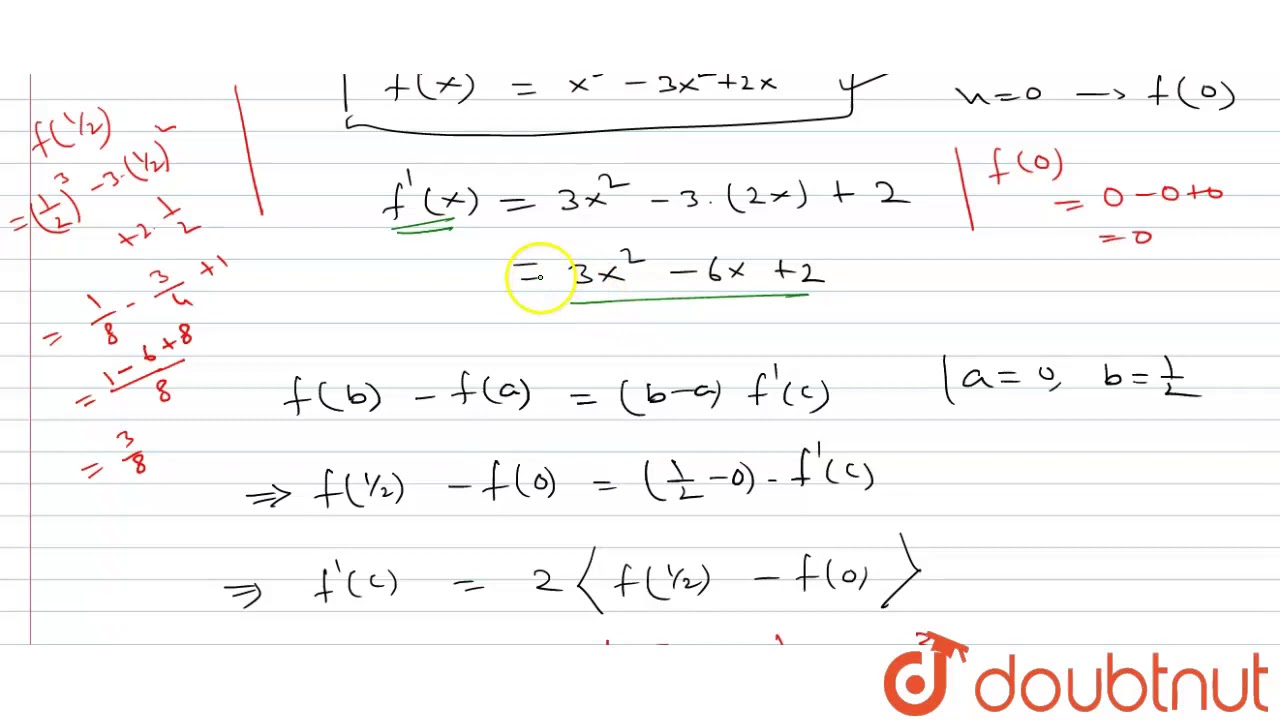 f(x) = x³ - 3x² + 2x
x=0 → f(0)
f'(x) = 3x² - 3.(2x) + 2
= 3x² - 6x + 2
f(0)
= 0 - 0 + 0
= 0
f(1/2)
= (1/2)³ - 3.(1/2)²
+ 2.1/2
= 1/8 - 3/4 + 1
= 1 - 6 + 8 / 8
= 3/8
f(b) - f(a) = (b-a) f'(c)
a = 0, b = 1/2
⇒ f(1/2) - f(0) = (1/2 - 0) . f'(c)
⇒ f'(c) = 2 〈 f(1/2) - f(0) 〉
doubtnut